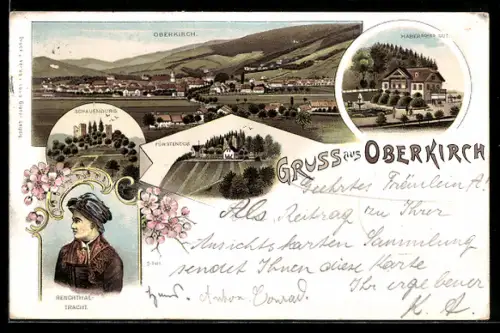 OBERKIRCH.
HABERMEHL GUT
SCHAUENBURG
FÜRSTENECK
GRUSS aus OBERKIRCH
Geehrtes Fräulein A!
Als Beitrag zu Ihrer
Ansichtskarten Sammlung
sendet Ihnen diese Karte
Ihr ergebener
K. A.
Anton Conrad.
RENCHTHAL-
TRACHT.